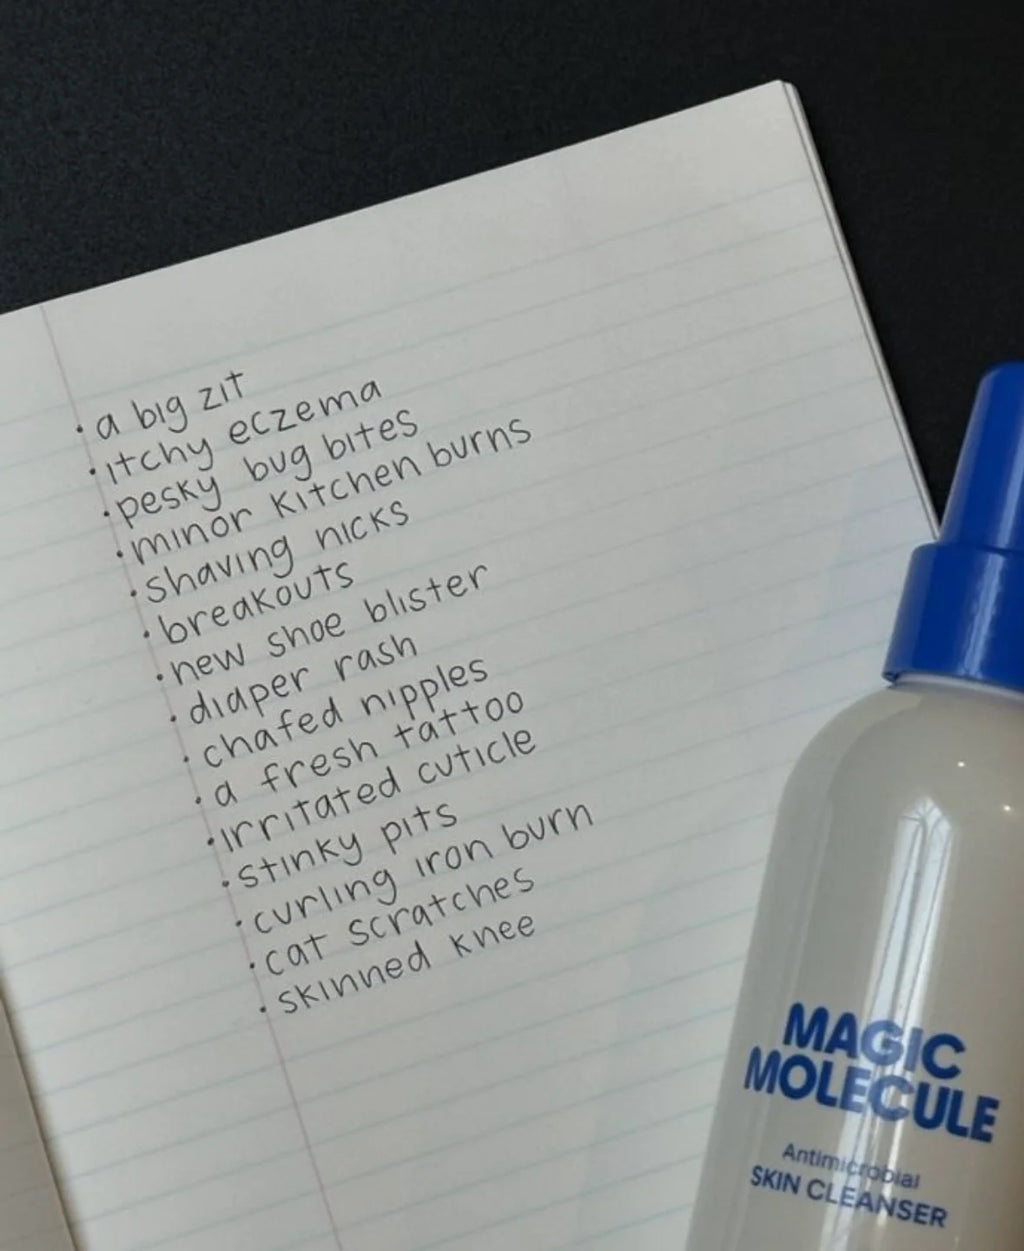 · a big zit
· itchy eczema
· pesky bug bites
· minor kitchen burns
· shaving nicks
· breakouts
· new shoe blister
· diaper rash
· chafed nipples
· a fresh tattoo
· irritated cuticle
· stinky pits
· curling iron burn
· cat scratches
· skinned knee
MAGIC
MOLECULE
Antimicrobial
SKIN CLEANSER